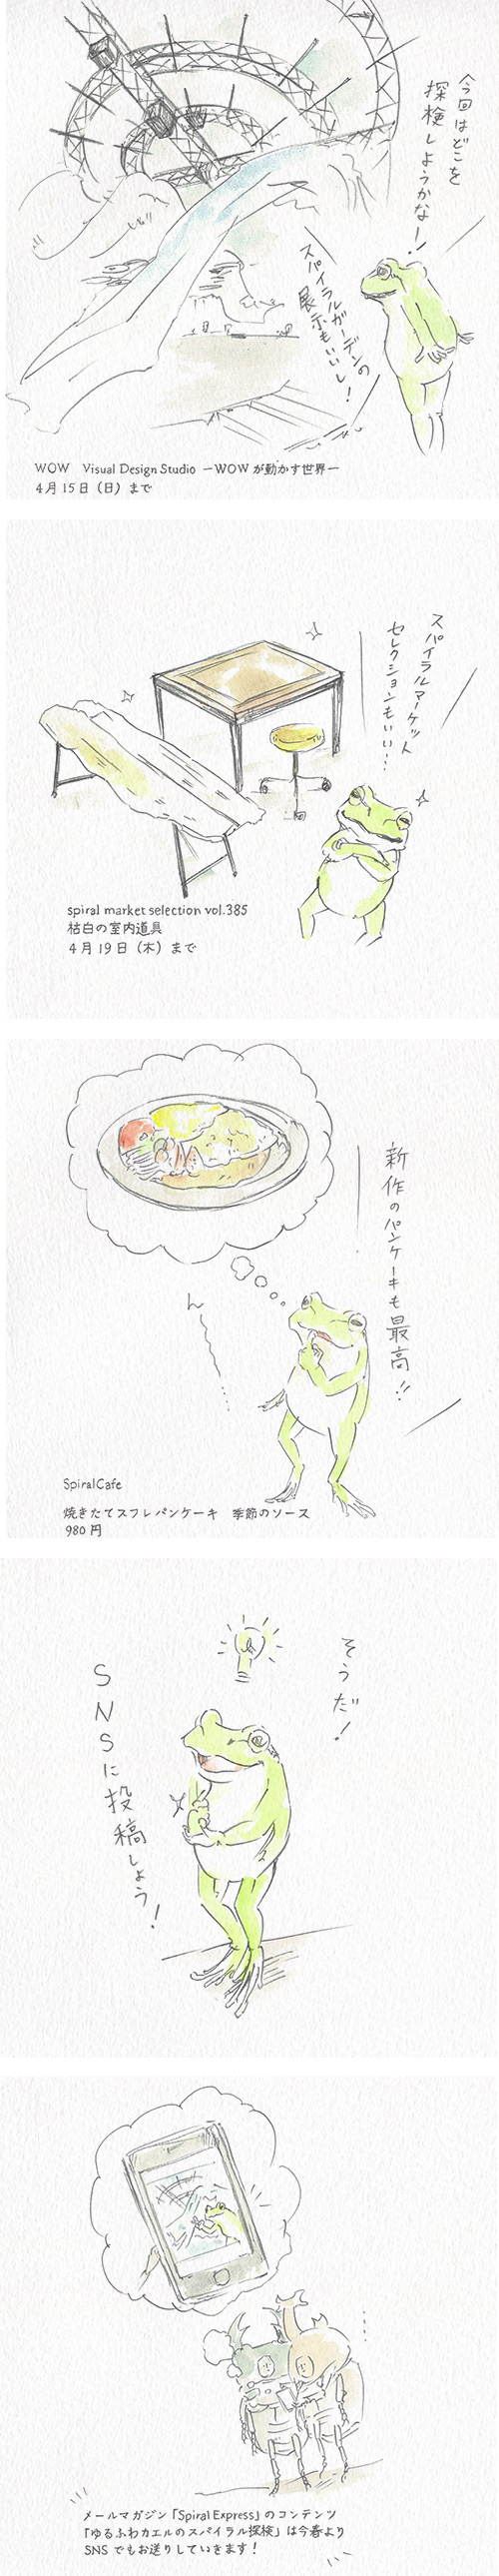 今回はどこを
探検しようかなー!
スパイラルガーデンの
展示もいいし!
WOW Visual Design Studio ーWOWが動かす世界ー
4月15日(日)まで
スパイラルマーケット
セレクションもいい…
spiral market selection vol.385
枯白の室内道具
4月19日(木)まで
新作のパンケーキも最高!!
ん〜…
SpiralCafe
焼きたてスフレパンケーキ 季節のソース
980円
そうだ!
SNSに投稿しよう!
……
メールマガジン「Spiral Express」のコンテンツ
「ゆるふわカエルのスパイラル探検」は今春より
SNSでもお送りしていきます!